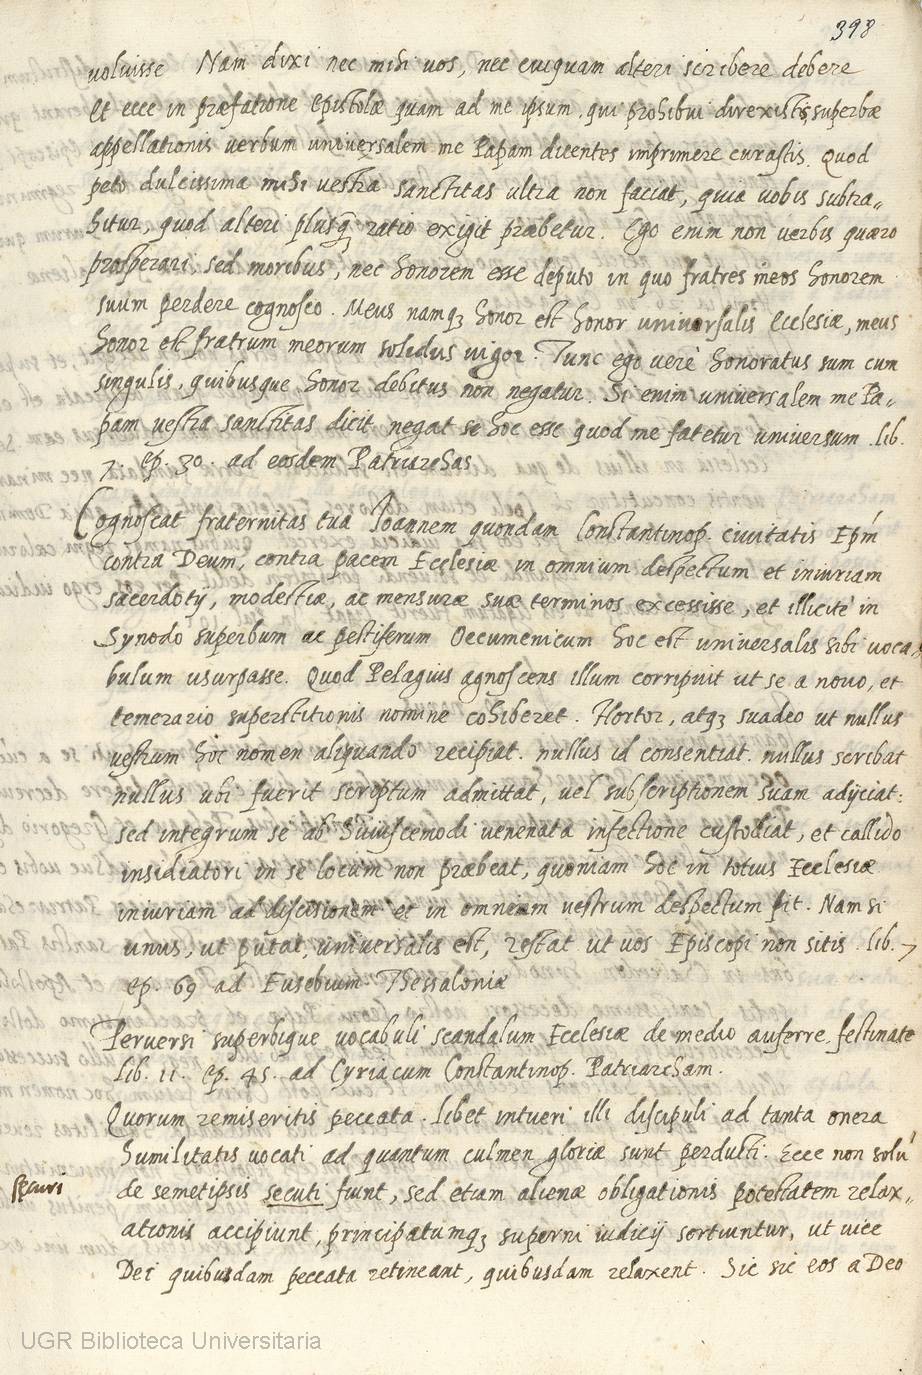 398
voluisse Nam dixi nec mihi vos, nec cuiquam alteri scribere debere
Et ecce in præfatione epistolæ quam ad me ipsum, qui prohibui direxistis, superbæ
appellationis verbum universalem me Papam dicentes imprimere curastis. Quod
peto dulcissima mihi vestra sanctitas ultra non faciat, quia vobis subtra„
hitur, quod alteri plusq̃ ratio exigit præbetur. Ego enim non verbis quæro
prosperari, sed moribus, nec honorem esse deputo in quo fratres meos honorem
suum perdere cognosco. Meus namq₃ honor est honor universalis Ecclesiæ, meus
honor est fratrum meorum solidus vigor. Tunc ego verè honoratus sum cum
singulis, quibusque honor debitus non negatur. Si enim universalem me Pa„
pam vestra sanctitas dicit, negat se hoc esse quod me fatetur universum. lib.
7. ep. 30. ad eosdem Patriarchas
Cognoscat fraternitas tua Joannem quondam Constantinop. civitatis Epm̃
contra Deum, contra pacem Ecclesiæ in omnium despectum et iniuriam
sacerdotij, modestiæ, ac mensuræ suæ terminos excessisse, et illicitè in
Synodo superbum ac pestiferum Oecumenicum hoc est universalis sibi voca„
bulum usurpasse. Quod Pelagius agnoscens illum corripuit ut se a novo, et
temerario superstitionis nomine cohiberet. Hortor, atq₃ suadeo ut nullus
vestrum hoc nomen aliquando recipiat. nullus id consentiat. nullus scribat
nullus ubi fuerit scriptum admittat, vel subscriptionem suam adijciat:
sed integrum se ab huiuscemodi venenata infectione custodiat, et callido
insidiatori in se locum non præbeat, quoniam hoc in totius Ecclesiæ
iniuriam ad discisionem et in omnem vestrum despectum fit. Nam si
unus, ut putat, universalis est, restat ut vos Episcopi non sitis. lib. 7
ep. 69 ad Eusebium Thessaloniæ
Perversi superbique vocabuli scandalum Ecclesiæ de medio auferre festinate
lib. 11. ep. 45. ad Cyriacum Constantinop. Patriarcham.
Quorum remiseritis peccata. libet intueri illi discipuli ad tanta onera
humilitatis vocati ad quantum culmen gloriæ sunt perducti. Ecce non solũ
securi
de semetipsis secuti fiunt, sed etiam alienæ obligationis potestatem relax„
ationis accipiunt, principatumq₃ superni iudicij sortiuntur, ut vice
Dei quibusdam peccata retineant, quibusdam relaxent. Sic sic eos a Deo
UGR Biblioteca Universitaria